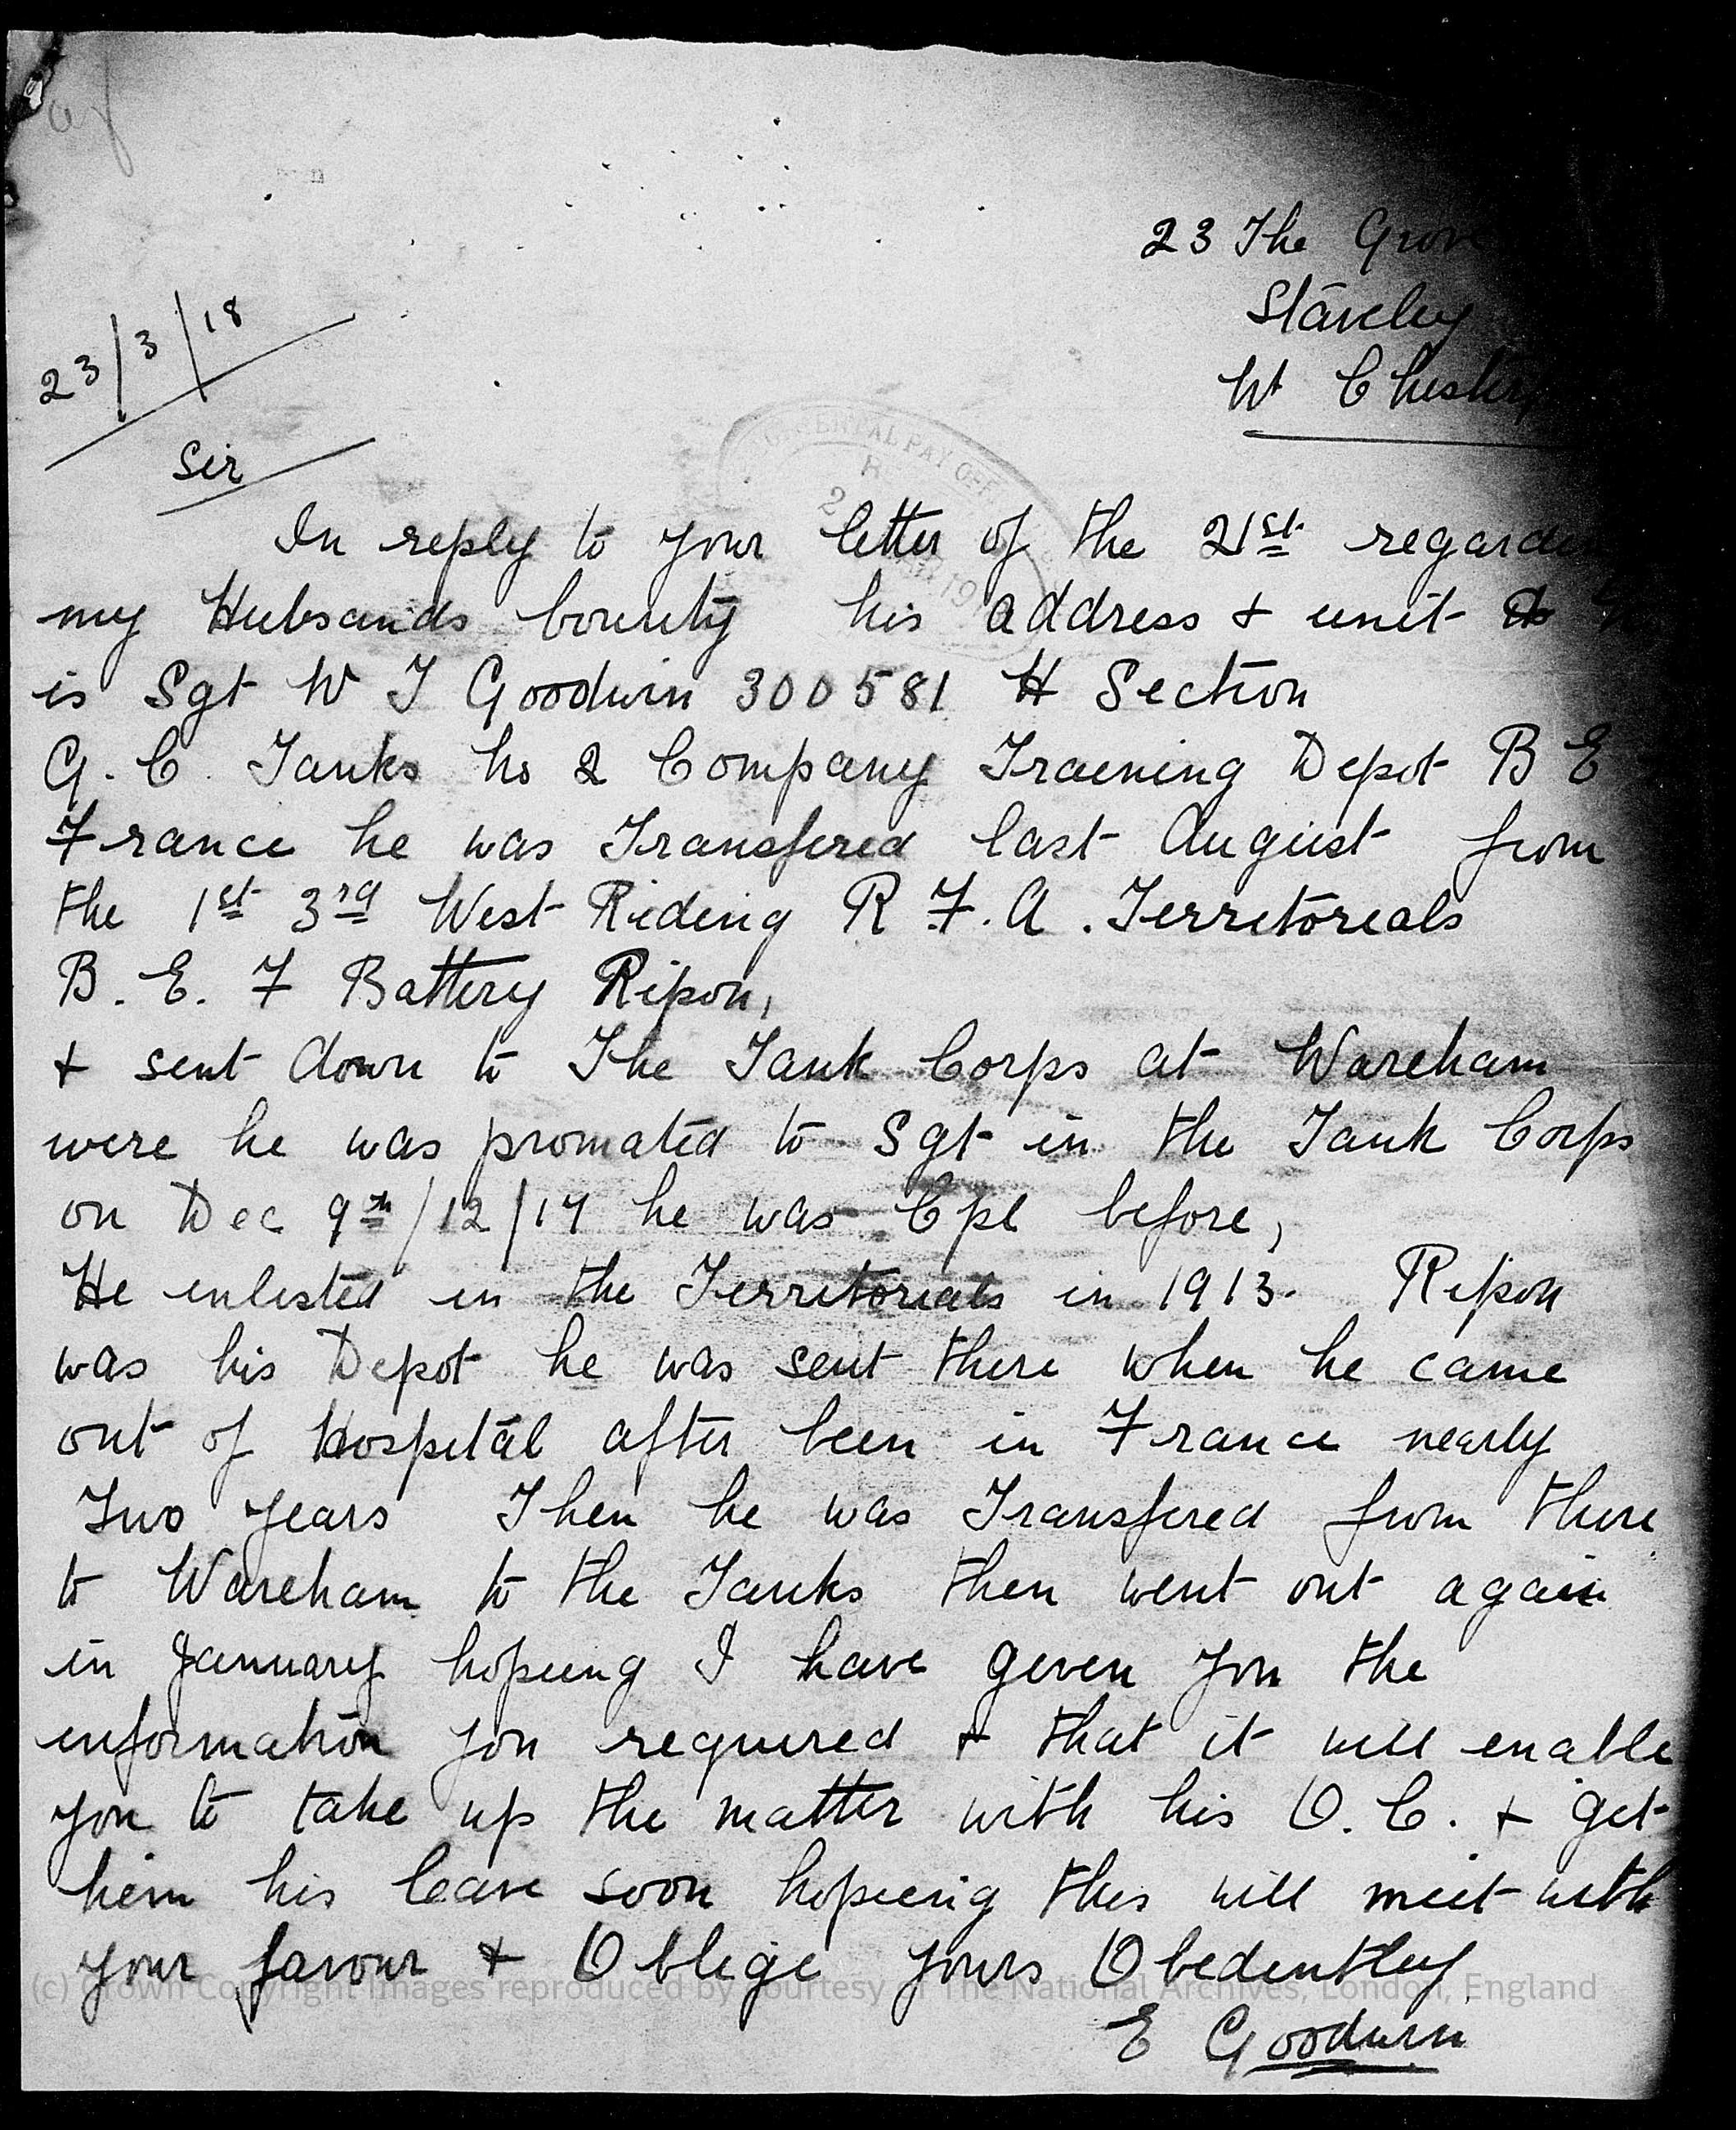 23 The Grove
Staveley
Nr Chesterf
23/3/18
Sir
In reply to your letter of the 21st regarding
my Hubsands bounty his address + unit
is Sgt W J Goodwin 300581 H Section
G.C. Tanks No 2 Company Training Depot B E
France he was Transfered last August from
the 1st 3rd West Riding R F.A. Territoreals
B. E. F Battery Ripon,
+ sent down to The Tank Corps at Wareham
were he was promated to Sgt in the Tank Corps
on Dec 9th/12/17 he was Cpl before,
He enlisted in the Territorials in 1913. Ripon
was his Depot he was sent there when he came
out of Hospital after been in France nearly
Two years Then he was Transfered from there
to Wareham to the Tanks then went out again
in January hopeing I have given you the
information you required + that it will enable
you to take up the matter with his O.C. + get
him his leave soon hopeing this will meet with
your favour + Oblige yours Obedentley
(c) Crown Copyright Images reproduced by courtesy of The National Archives, London, England
E Goodwin